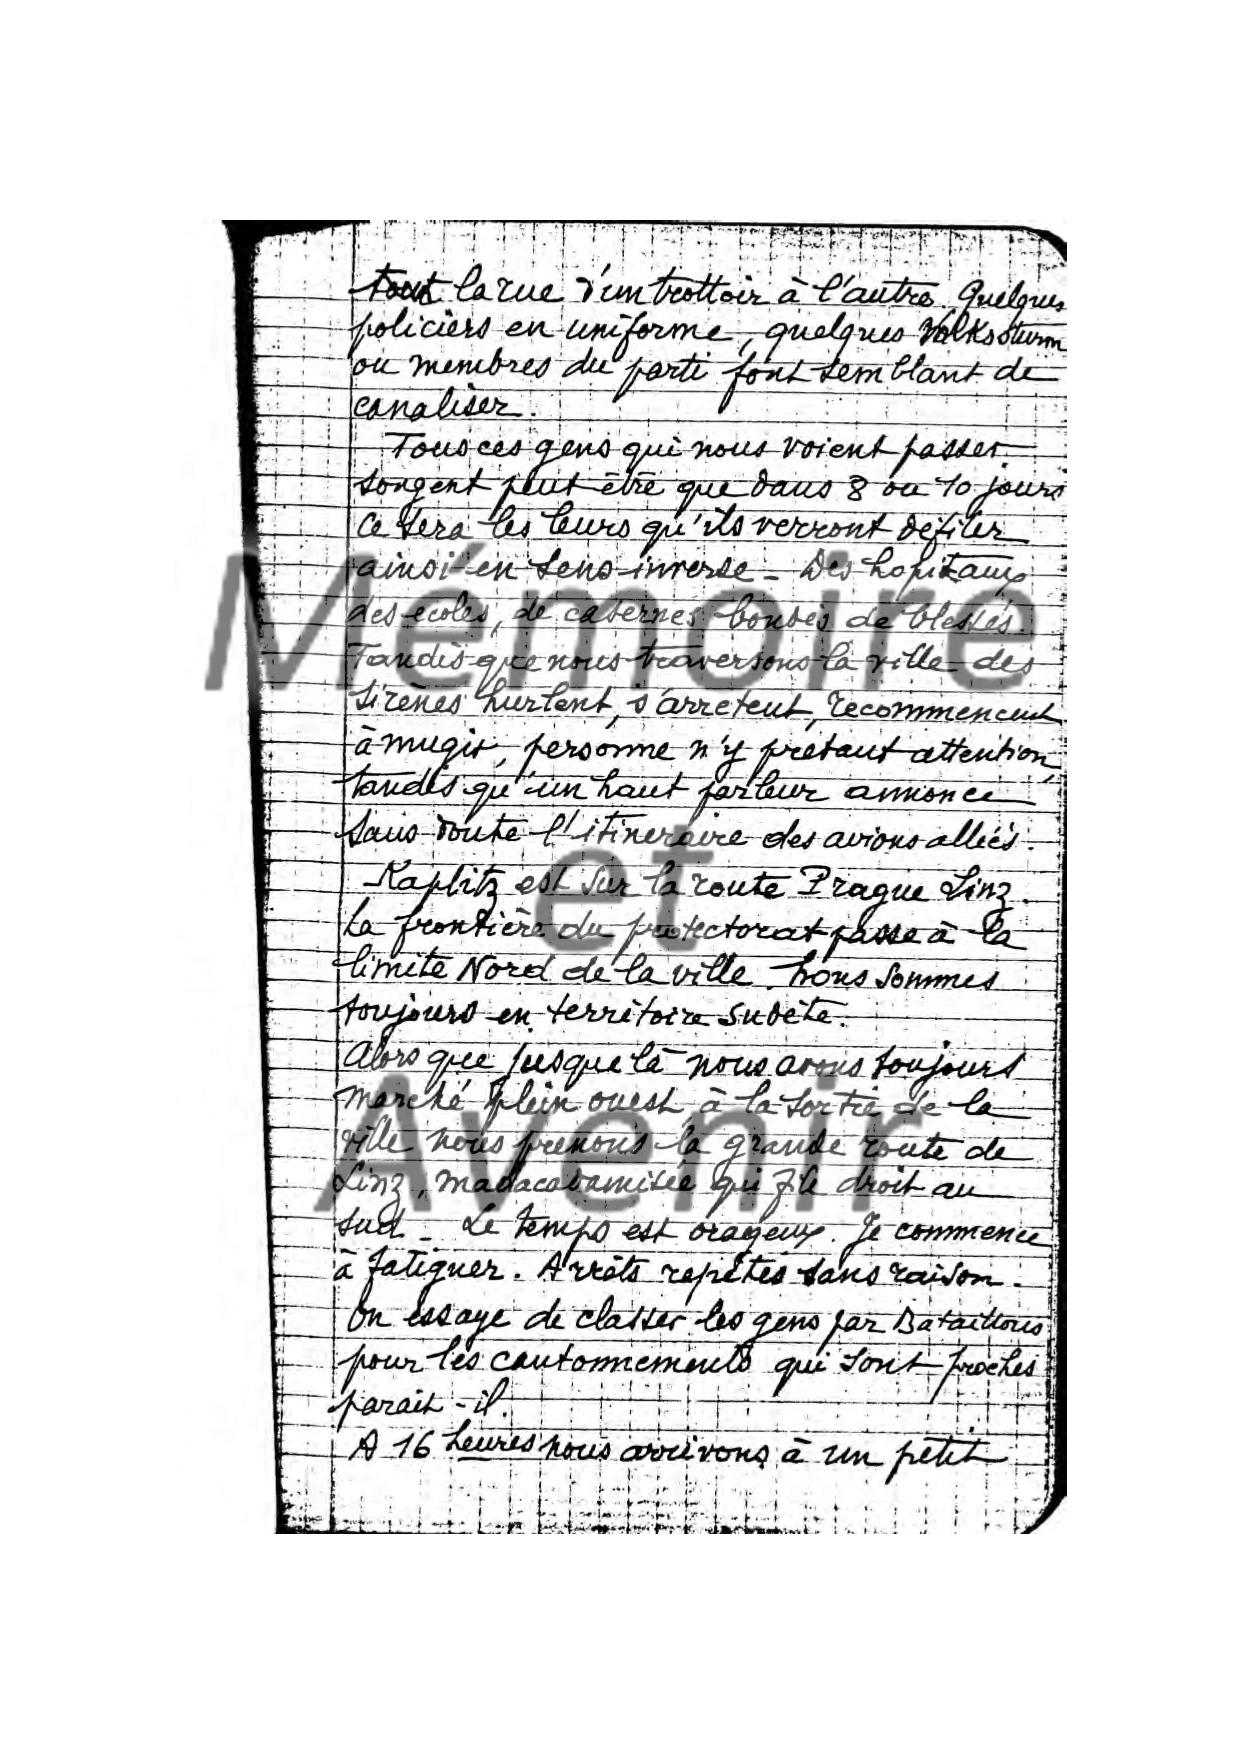 tout la rue d'un trottoir à l'autre. Quelques
policiers en uniforme, quelques Volkssturm
ou membres du parti font semblant de
canaliser.
Tous ces gens qui nous voient passer
songent peut être que dans 8 ou 10 jours
ce sera les leurs qu'ils verront défiler
ainsi en sens inverse - Des hopitaux
des écoles, de casernes bondés de blessés.
Tandis que nous traversons la ville des
sirènes hurlent, s'arretent, recommencent
à mugir, personne n'y prétant attention,
tandis qu'un haut parleur annonce
sans doute l'itineraire des avions alliés.
Kaplitz est sur la route Prague Linz.
La frontière du protectorat passe à la
limite Nord de la ville. Nous sommes
toujours en territoire sudète.
Alors que jusque là nous avons toujours
marché plein ouest à la sortie de la
ville nous prenons la grande route de
Linz, madacadamisée qui file droit au
sud - Le temps est orageux. Je commence
à fatiguer. Arrêts repétés sans raison.
On essaye de classer les gens par Bataillons
pour les cantonnements qui sont proches
parait-il.
A 16 heures nous arrivons à un petit
Mémoire
et
Avenir